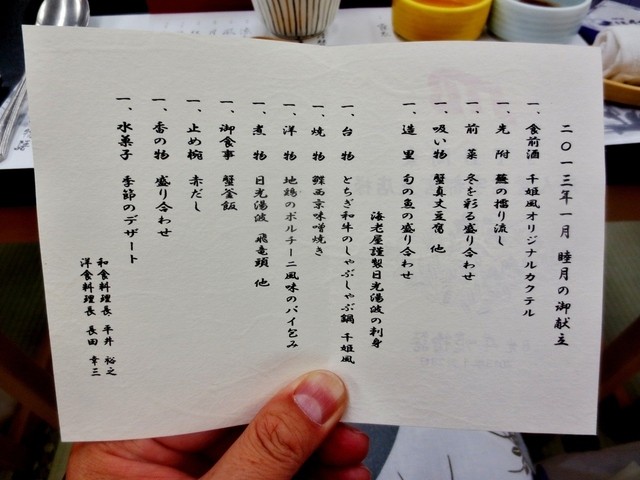 二〇一三年一月 睦月の御献立
一、食前酒 千姫風オリジナルカクテル
一、先附 蕪の擂り流し
一、前菜 冬を彩る盛り合わせ
一、吸い物 蟹真丈豆腐 他
一、造里 旬の魚の盛り合わせ
海老屋謹製日光湯波の刺身
一、台物 とちぎ和牛のしゃぶしゃぶ鍋 千姫風
一、焼物 鰈西京味噌焼き
一、洋物 地鶏のポルチーニ風味のパイ包み
一、煮物 日光湯波 飛竜頭 他
一、御食事 蟹釜飯
一、止め椀 赤だし
一、香の物 盛り合わせ
一、水菓子 季節のデザート
和食料理長 平井 裕之
洋食料理長 長田 幸三